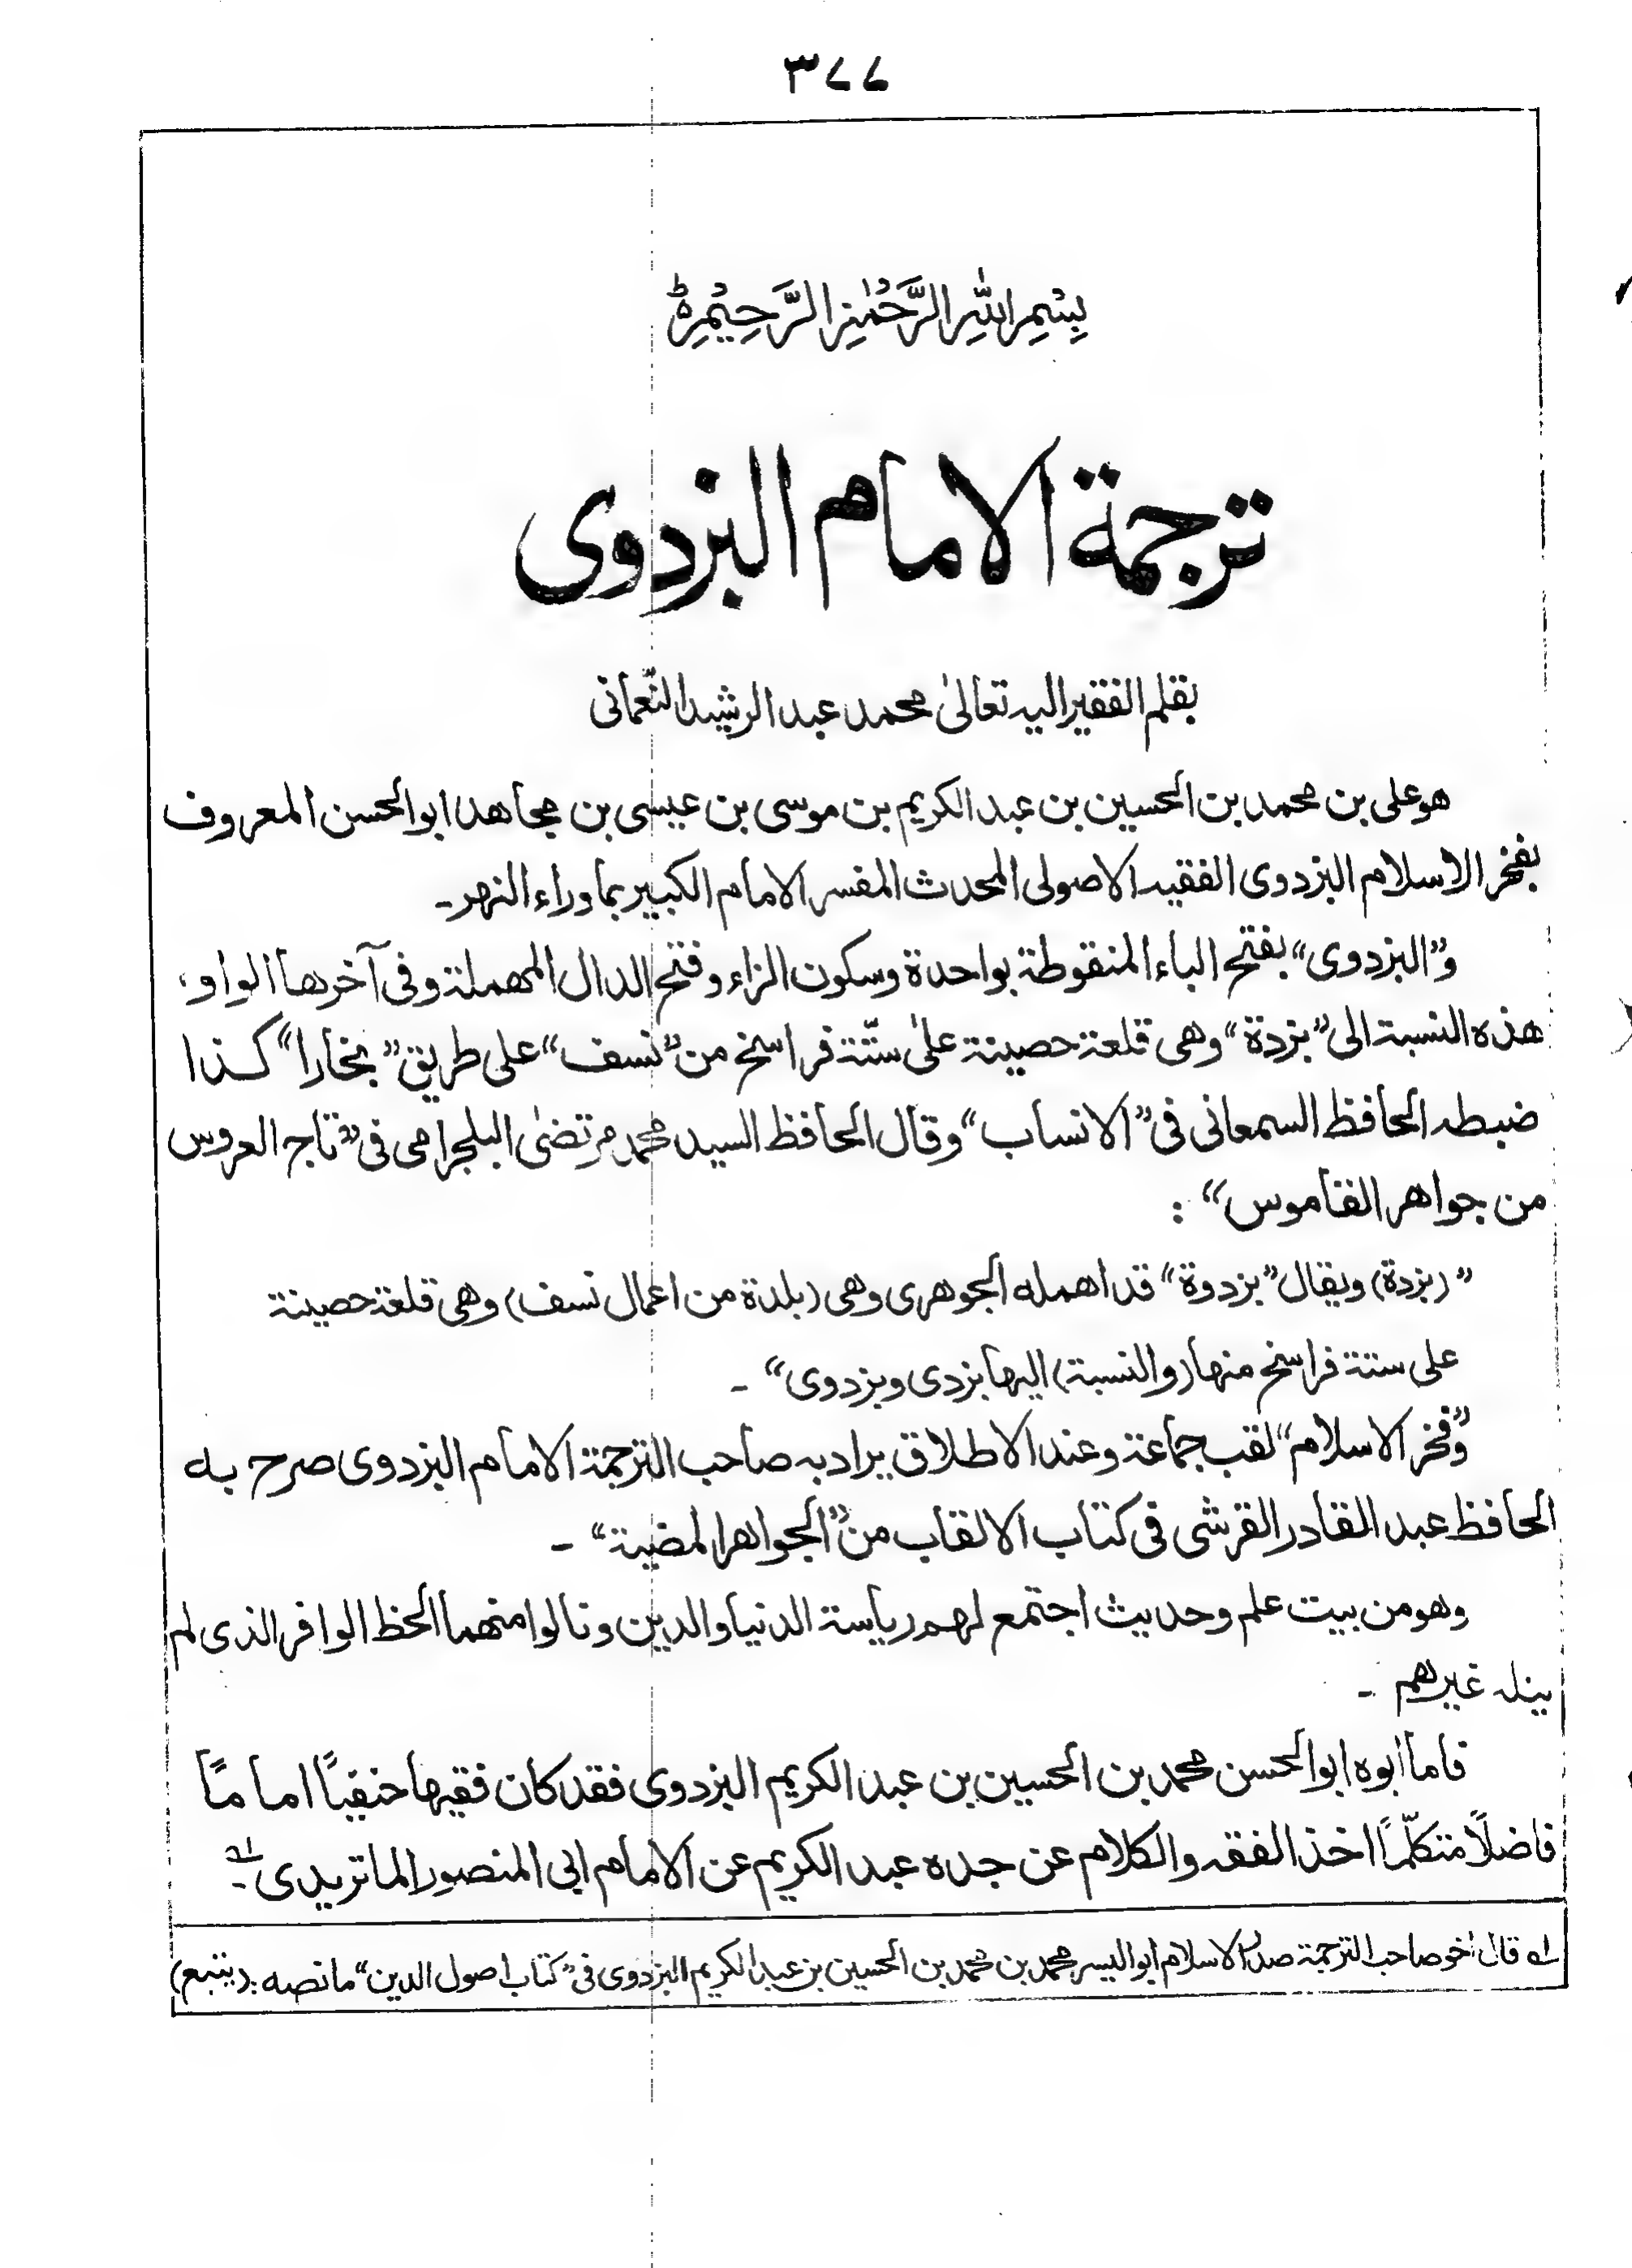 ٣٧٧
بِسْمِ اللهِ الرَّحْمٰنِ الرَّحِيْمِ ط
ترجمة الامام البزدوى
بقلم الفقير اليه تعالىٰ محمد عبد الرشيد النّعمانى
هو على بن محمد بن الحسين بن عبد الكريم بن موسى بن عيسى بن مجاهد ابو الحسن المعروف
بفخر الاسلام البزدوى الفقيه الاصولى المحدث المفسر الامام الكبير بما وراء النهر۔
و”البزدوى“ بفتح الباء المنقوطة بواحدة وسكون الزاء وفتح الدال المهملة وفى آخرها الواو،
هذه النسبة الى ”بزدة“ وهى قلعة حصينة علىٰ ستّة فراسخ من ”نسف“ على طريق ”بخارا“ كذا
ضبطه الحافظ السمعانى فى ”الانساب“ وقال الحافظ السيد محمد مرتضىٰ البلجرامى فى ”تاج العروس
من جواهر القاموس“ :
”(بزدة) ويقال ”بزدوة“ قد اهمله الجوهرى وهى (بلدة من اعمال نسف) وهى قلعة حصينة
على ستة فراسخ منها (والنسبة) اليها بزدى وبزدوى“ ۔
و”فخر الاسلام“ لقب جماعة وعند الاطلاق يراد به صاحب الترجمة الامام البزدوى صرح به
الحافظ عبد القادر القرشى فى كتاب الالقاب من ”الجواهر المضية“ ۔
وهو من بيت علم وحديث اجتمع لهم رياسة الدنيا والدين ونالوا منهما الحظ الوافر الذى لم
ينله غيرهم ۔
فاما ابوه ابو الحسن محمد بن الحسين بن عبد الكريم البزدوى فقد كان فقيها حنفيًا امامًا
فاضلًا متكلّمًا اخذ الفقه والكلام عن جده عبد الكريم عن الامام ابى المنصور الماتريدى ۔ له
له قال اخو صاحب الترجمة صدر الاسلام ابو اليسر محمد بن محمد بن الحسين بن عبد الكريم البزدوى فى ”كتاب اصول الدين“ ما نصه :. (يتبع)